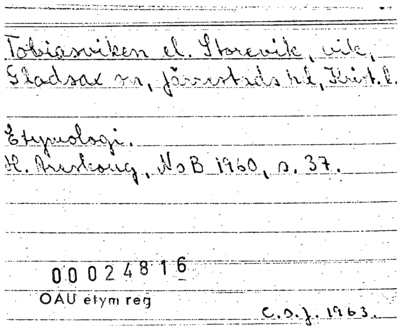 Tobiasviken el. Storevik, vik,
Gladsax sn, Järrestads hd, Krist. l.
Etymologi.
H. Areskoug, NoB 1960, s. 37.
00024816
OAU etym reg
C.o.J. 1963.